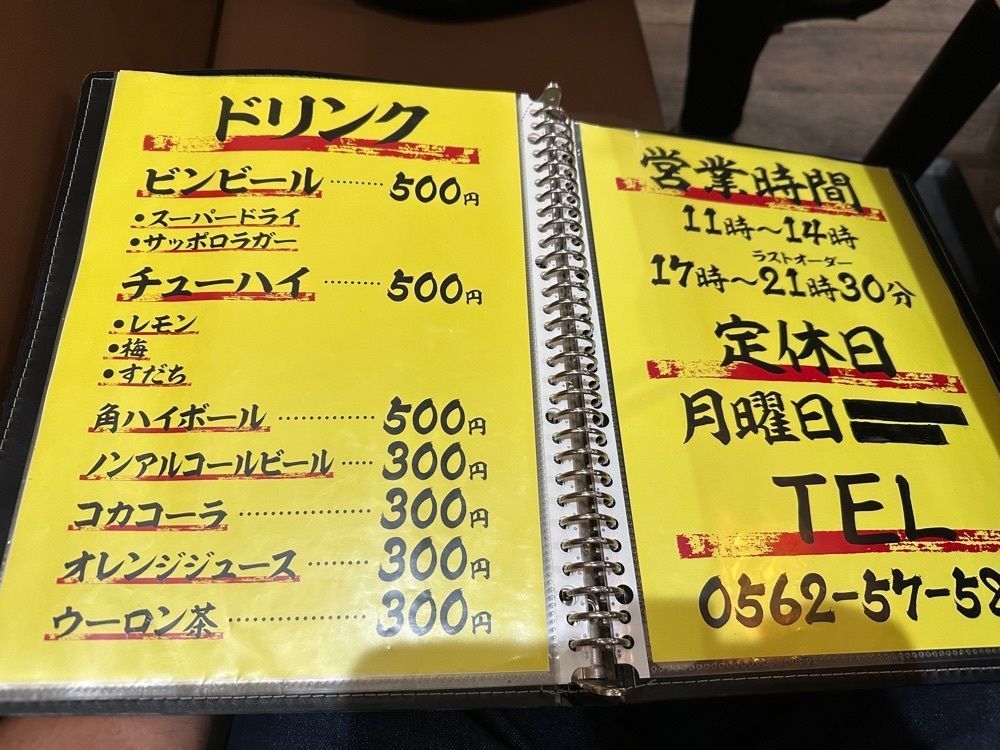 ドリンク
ビンビール ········ 500円
•スーパードライ
•サッポロラガー
チューハイ ········ 500円
•レモン
•梅
•すだち
角ハイボール ·············· 500円
ノンアルコールビール ····· 300円
コカコーラ ··················· 300円
オレンジジュース ········· 300円
ウーロン茶 ···················· 300円
営業時間
11時〜14時
ラストオーダー
17時〜21時30分
定休日
月曜日
TEL
0562-57-58